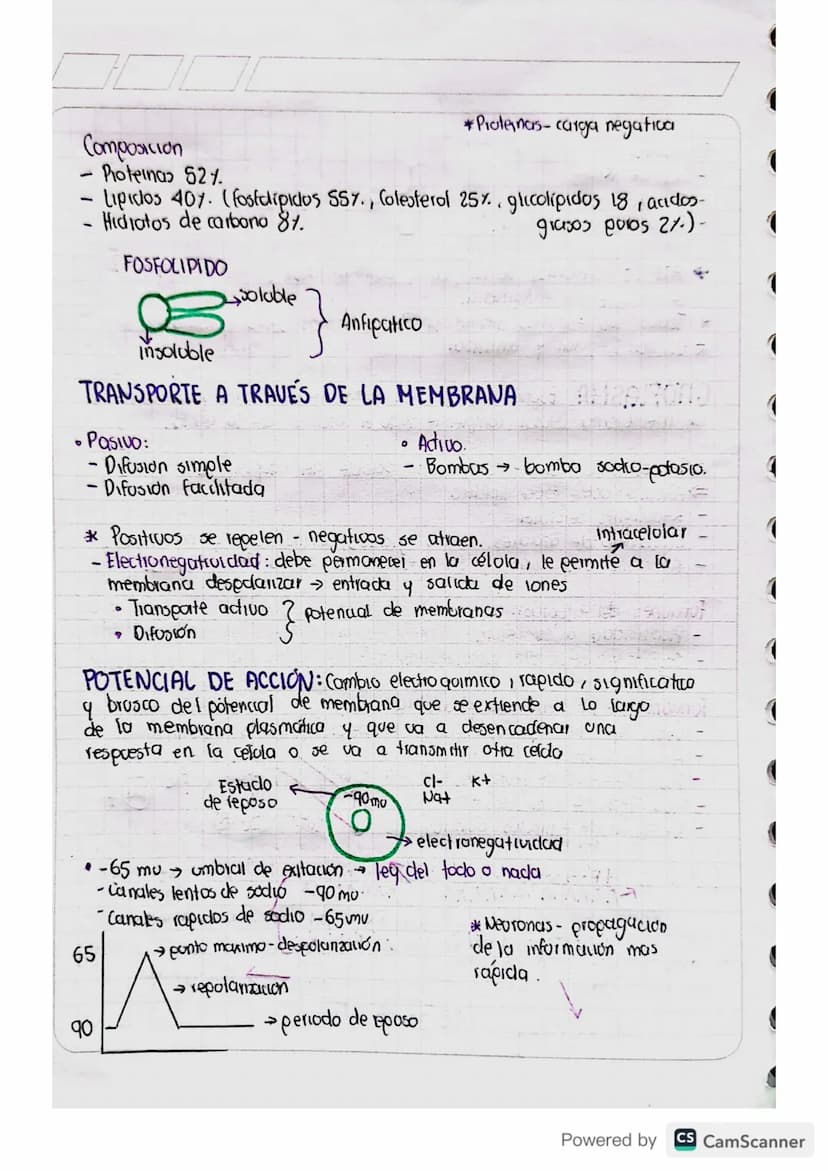 *Proteinas- carga negativa
Composicion
- Proteinas 52%.
- Lipidos 40%. (fosfolipidos 55%., Colesterol 25%., glicolípidos 18, acidos-
grasos puros 2%.)-
- Hidratos de carbono 8%.
FOSFOLIPIDO
soluble
Anfipatico
insoluble
TRANSPORTE A TRAVÉS DE LA MEMBRANA
• Pasivo:
- Difusion simple
- Difusión facilitada
• Activo.
- Bombas → bomba sodio-potasio.
* Positivos se repelen - negativos se atraen.
intracelolar
- Electronegatividad: debe permanecer en la célola, le permite a la
membrana despolarizar → entrada y salida de iones
• Transporte activo
• Difusión
potencial de membranas
POTENCIAL DE ACCIÓN: Cambio electroquimico, rapido, significativo
y brusco del potencial de membrana que se extiende a lo largo
de la membrana plasmática y que va a desencadenar una
respuesta en la celola o se va a transmitir otra célola
Estado
de reposo
-90mv
Cl- K+
Na+
→ electronegatividad
• -65 mv → umbral de exitación → ley del todo o nada
- Canales lentos de sodio -90mv
- Canales rapidos de sodio -65mv
65
→ punto maximo-despolarización.
→ repolarizacion
90
→ periodo de reposo
* Neuronas - propagación
de la información mas
rápida.
Powered by CS CamScanner